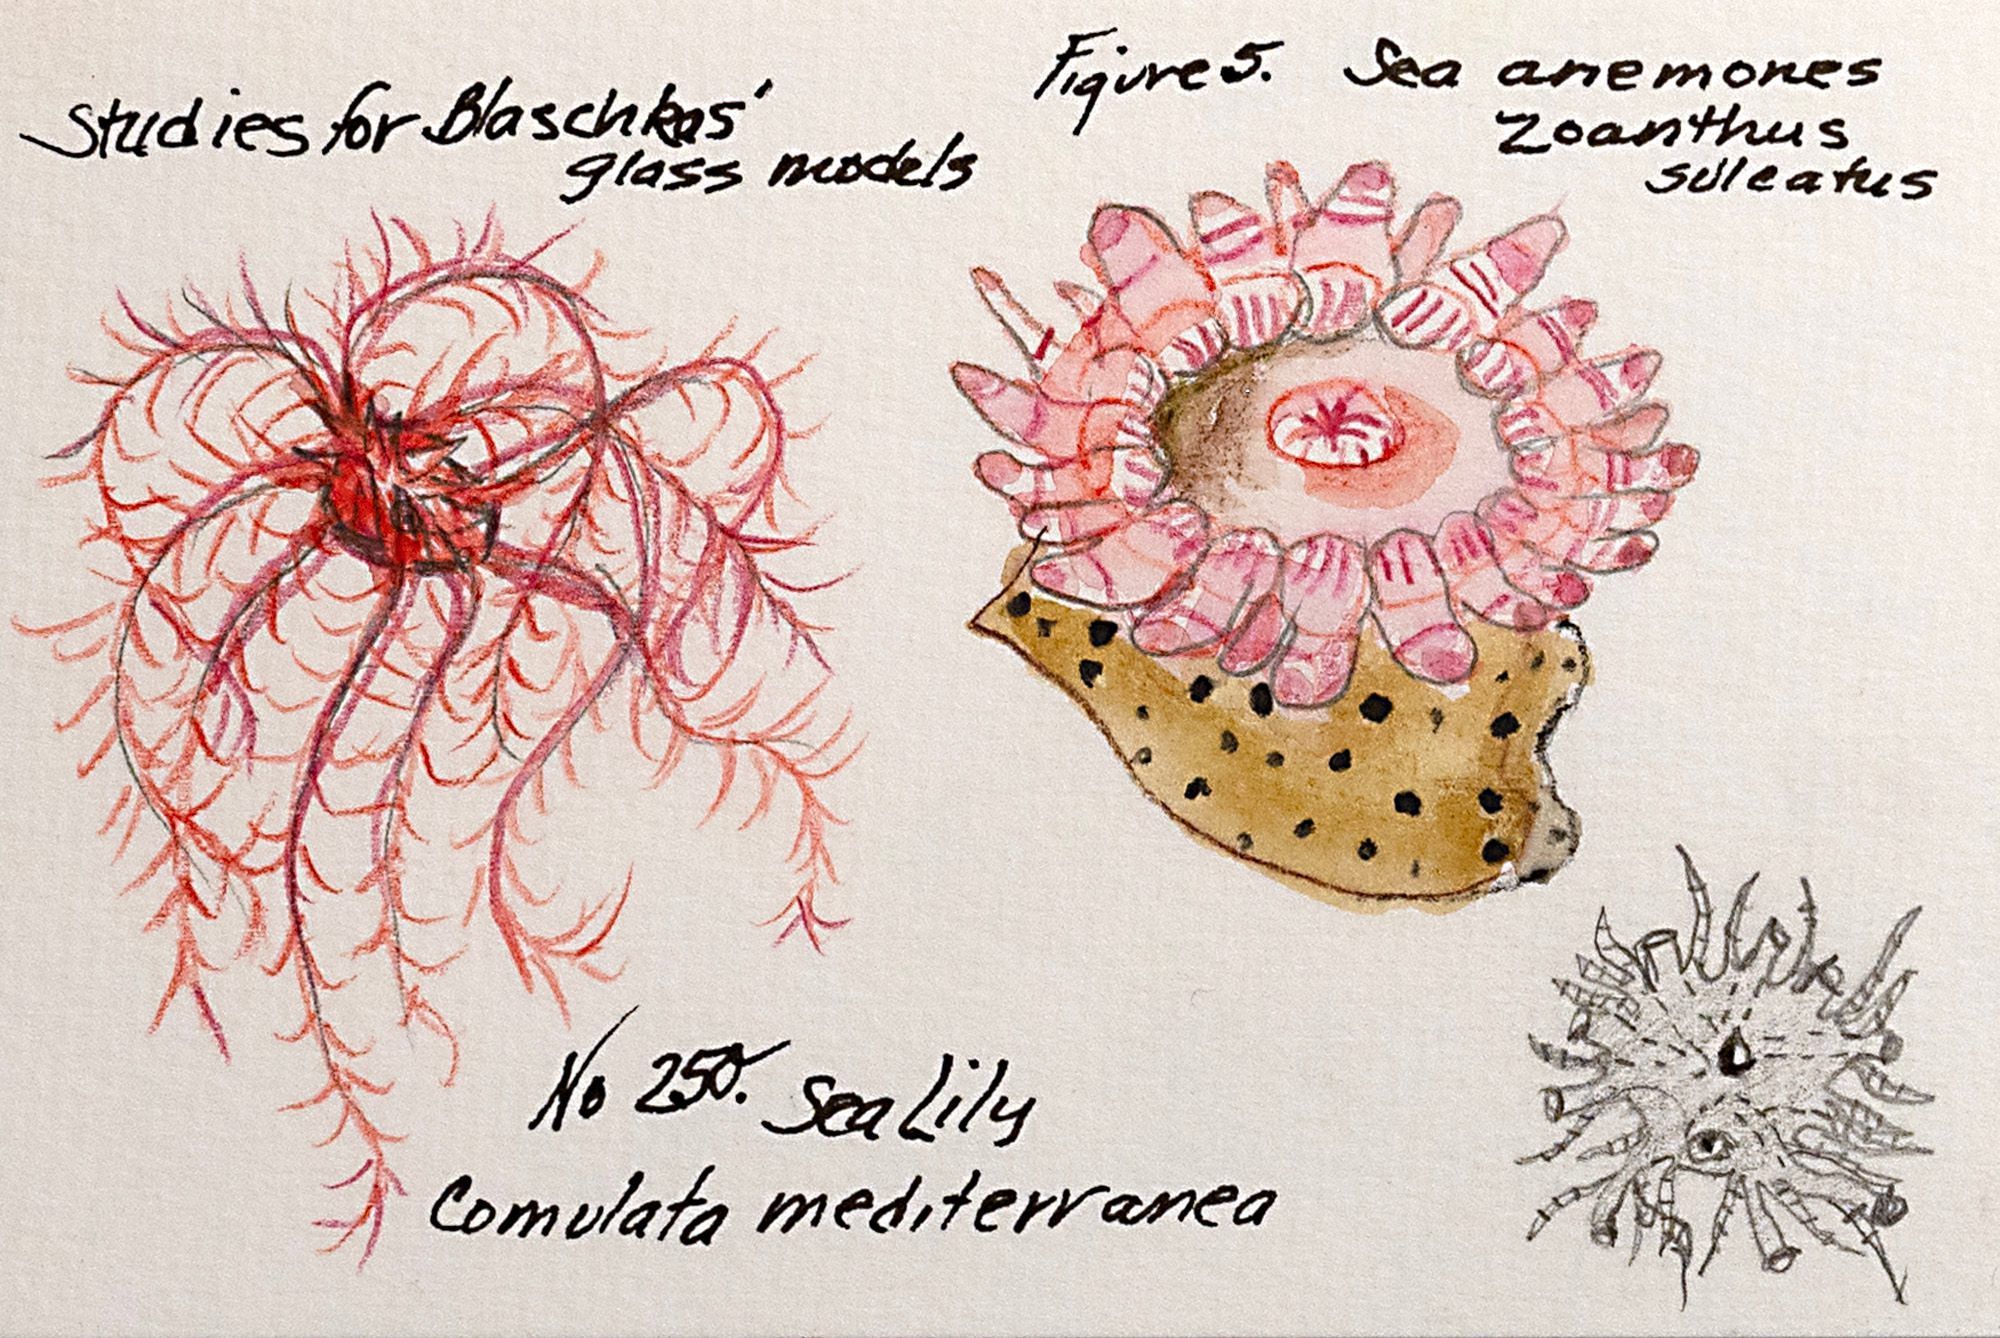 Studies for Blaschkas'
glass models
Figure 5. Sea anemones
Zoanthus
sulcatus
No 250. Sea Lily
Comulata mediterranea